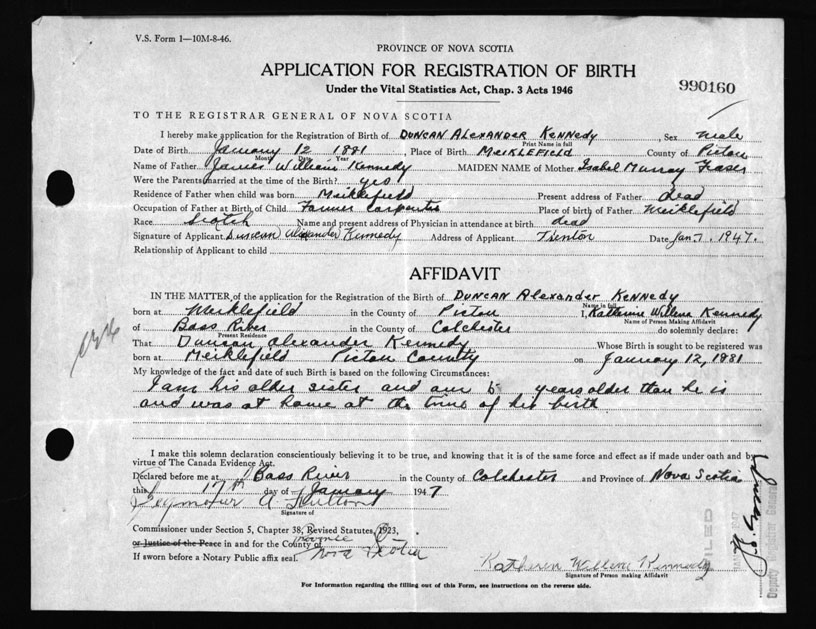 V.S. Form 1—10M-8-46.
PROVINCE OF NOVA SCOTIA
APPLICATION FOR REGISTRATION OF BIRTH
Under the Vital Statistics Act, Chap. 3 Acts 1946
990160
TO THE REGISTRAR GENERAL OF NOVA SCOTIA
I hereby make application for the Registration of Birth of DUNCAN ALEXANDER KENNEDY, Sex male
Print Name in full
Date of Birth January 12 1881, Place of Birth MEIKLEFIELD County of Pictou
Month Date Year
Name of Father James William Kennedy MAIDEN NAME of Mother Isabel Murray Fraser
Were the Parents married at the time of the Birth? yes
Residence of Father when child was born Meiklefield Present address of Father dead
Occupation of Father at Birth of Child Farmer Carpenter Place of birth of Father Meiklefield
Race Scotch Name and present address of Physician in attendance at birth dead
Signature of Applicant Duncan Alexander Kennedy Address of Applicant Trenton Date Jan 7. 1947.
Relationship of Applicant to child
AFFIDAVIT
IN THE MATTER of the application for the Registration of the Birth of DUNCAN Alexander KENNEDY
Name in full
born at Meiklefield in the County of Pictou I, Katherine Willena Kennedy
Name of Person Making Affidavit
of Bass River in the County of Colchester do solemnly declare:
Present Residence
That Duncan Alexander Kennedy Whose Birth is sought to be registered was
born at Meiklefield Pictou County on January 12, 1881
My knowledge of the fact and date of such Birth is based on the following Circumstances:
I am his older sister and am 5 years older than he is
and was at home at the time of his birth
I make this solemn declaration conscientiously believing it to be true, and knowing that it is of the same force and effect as if made under oath and by
virtue of The Canada Evidence Act.
Declared before me at Bass River in the County of Colchester and Province of Nova Scotia
this 17th day of January 1947
Seymour A
Signature of
Commissioner under Section 5, Chapter 38, Revised Statutes, 1923,
or Justice of the Peace in and for the County of Province of
If sworn before a Notary Public affix seal. Nova Scotia
Katherine Willena Kennedy
Signature of Person making Affidavit
For Information regarding the filling out of this Form, see instructions on the reverse side.
FILED
Deputy Registrar General